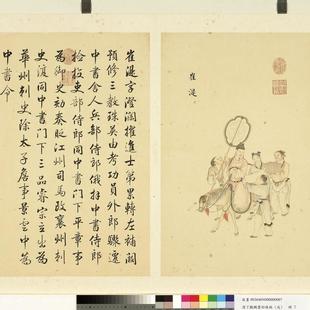 崔湜
崔湜字澄瀾擢進士第累轉左補闕
預修三教珠英由考功員外郎驟遷
中書舍人兵部侍郎俄拜中書侍郎
檢校吏部侍郎同中書門下平章事
為御史劾奏貶江州司馬改襄州刺
史復同中書門下三品睿宗立出為
華州刺史除太子詹事景雲中為
中書令